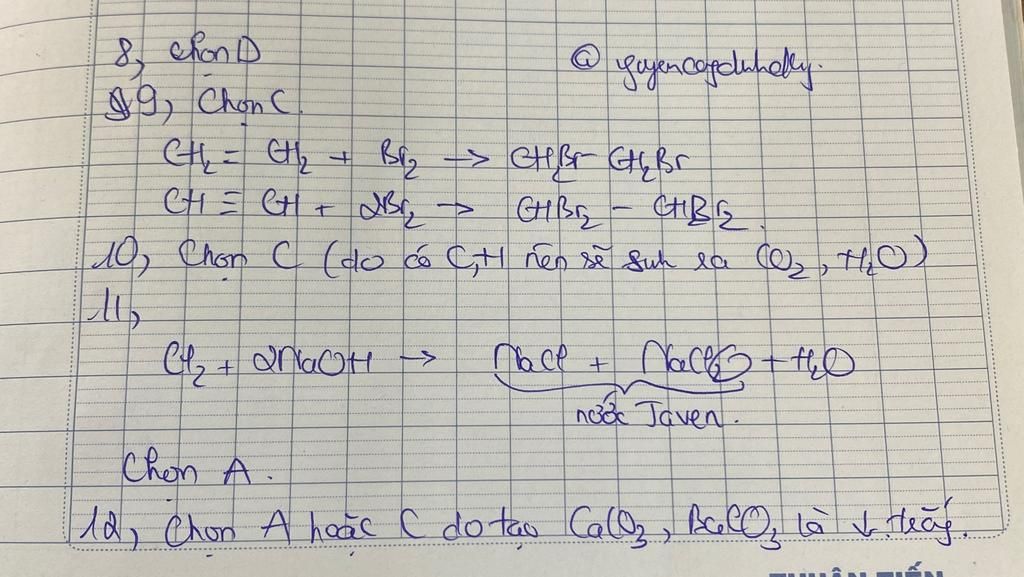 8, Chọn D
@
9, Chọn C.
CH₂ = CH₂ + Br₂ → CH₂Br - CH₂Br
CH ≡ CH + 2Br₂ → CHBr₂ - CHBr₂.
10, Chọn C (do có C,H nên sẽ sinh ra CO₂, H₂O)
11,
Cl₂ + 2NaOH → NaCl + NaClO + H₂O
nước Javen.
Chọn A.
12, Chọn A hoặc C do tạo CaCO₃, BaCO₃ là ↓ trắng.
THUẬN TIẾN